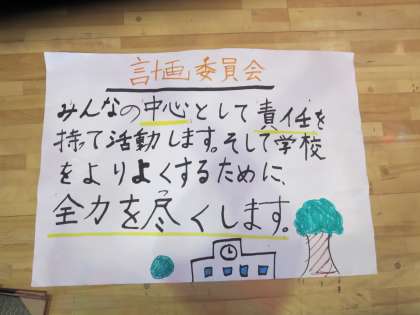 計画委員会
みんなの中心として責任を
持て活動します。そして学校
をよりよくするために、
全力を尽くします。